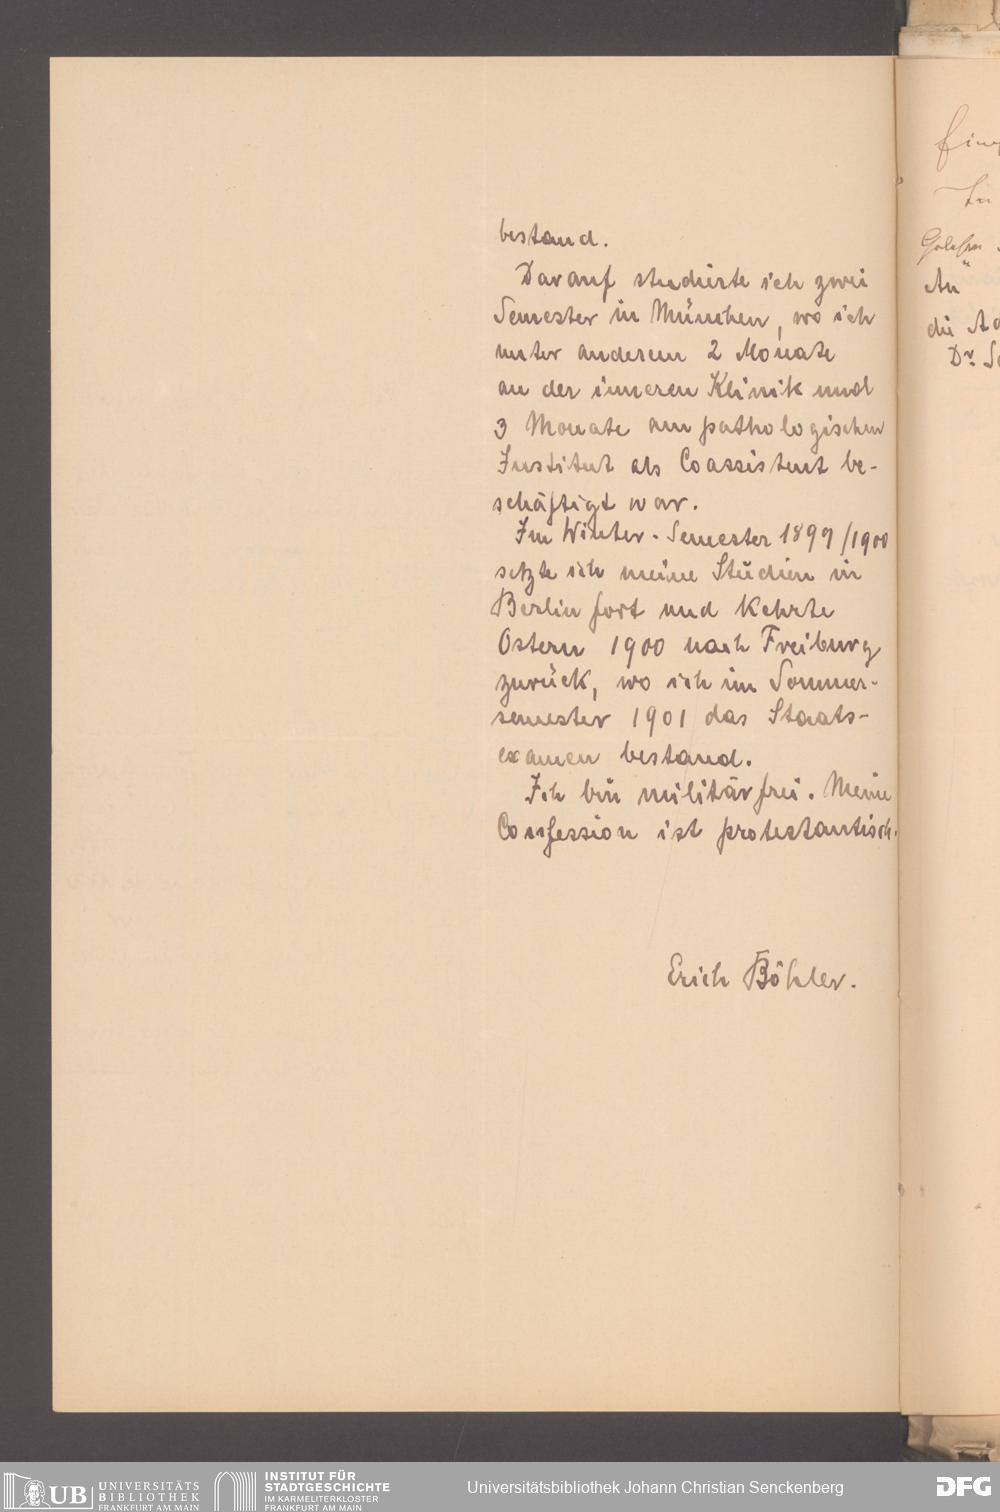 bestand.
Darauf studierte ich zwei
Semester in München, wo ich
unter anderem 2 Monate
an der inneren Klinik und
3 Monate am pathologischen
Institut als Coassistent be-
schäftigt war.
Im Winter-Semester 1899/1900
setzte ich meine Studien in
Berlin fort und kehrte
Ostern 1900 nach Freiburg
zurück, wo ich im Sommer-
semester 1901 das Staats-
examen bestand.
Ich bin militärfrei. Meine
Confession ist protestantisch.
Erich Böhler.
An
die
Dr.
UB UNIVERSITÄTS
BIBLIOTHEK
FRANKFURT AM MAIN
INSTITUT FÜR
STADTGESCHICHTE
IM KARMELITERKLOSTER
FRANKFURT AM MAIN
Universitätsbibliothek Johann Christian Senckenberg
DFG